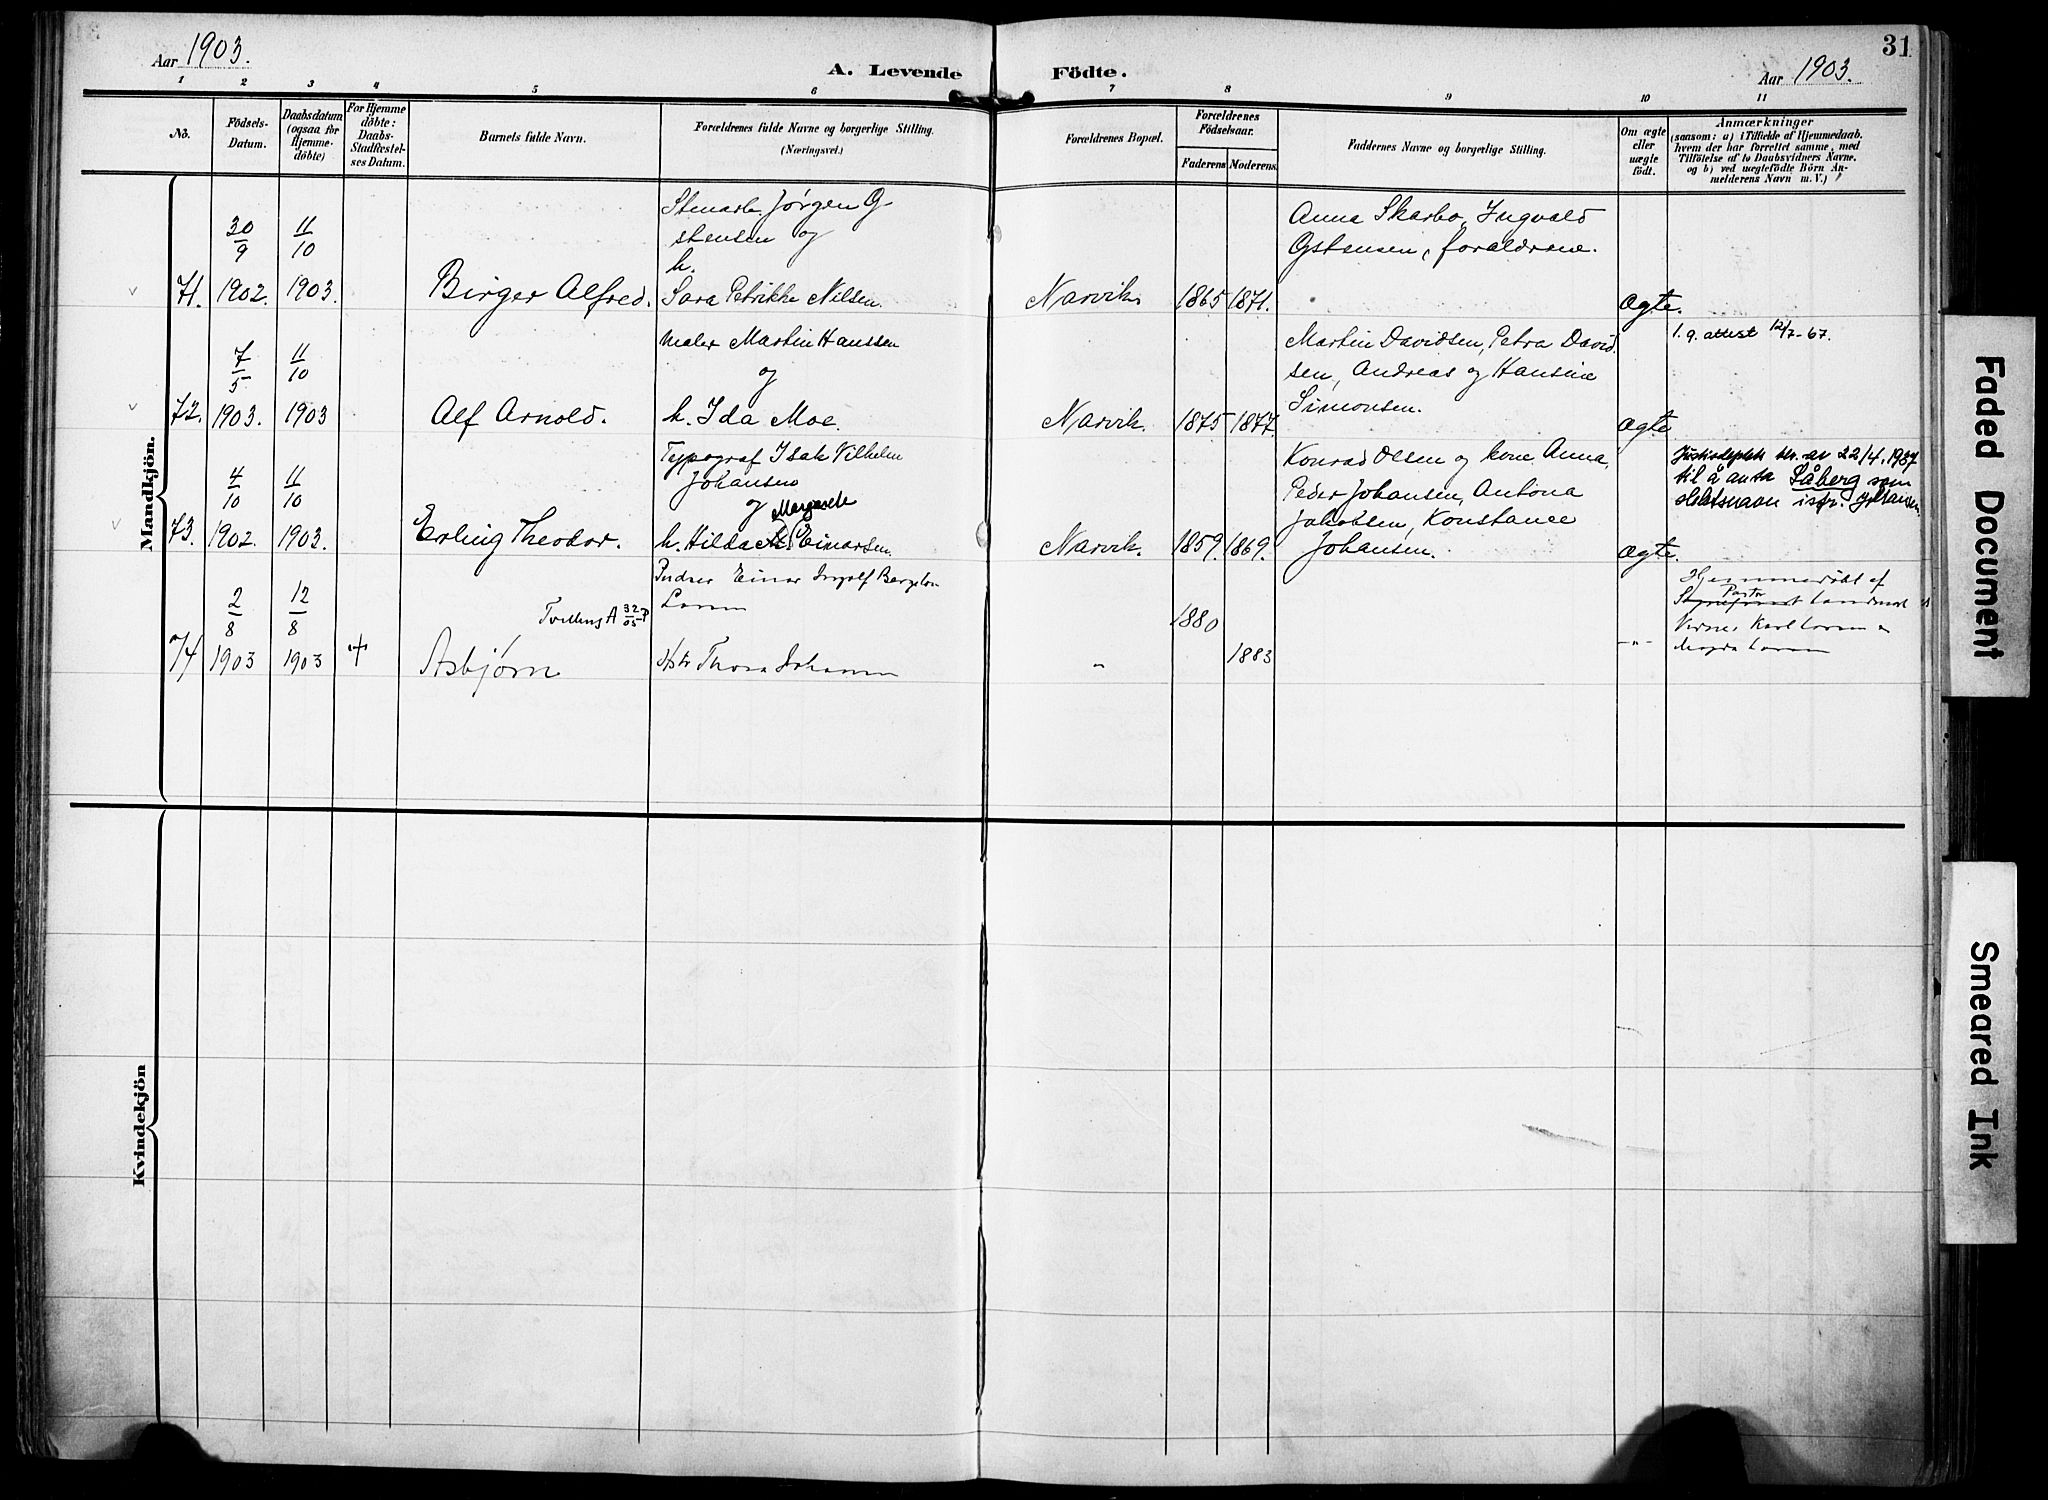 Aar 1903.
A. Levende Födte.
Aar 1903.
31
1 2 3 4 5 6 7 8 9 10 11
No.
Födsels-
Datum.
Daabsdatum
(ogsaa for
Hjemme-
döbte)
For Hjemme
döbte:
Daabs-
Stadfæstel-
ses Datum.
Barnets fulde Navn.
Forældrenes fulde Navne og borgerlige Stilling.
(Næringsvei.)
Forældrenes Bopæl.
Forældrenes
Födselsaar.
Faderens Moderens.
Faddernes Navne og borgerlige Stilling.
Om ægte
eller
uægte
födt.
Anmærkninger
(saasom: a) i Tilfælde af Hjemmedaab.
hvem der har forrettet samme, med
Tilföielse af to Daabsvidners Navne.
og b) ved uægtefödte Börn An-
melderens Navn m. V.)
Mandkjön.
71.
30
9
1902.
11
10
1903.
Birger Alfred.
Jørgen G
stensen og
h.
Sara Petrikke Nilsen.
Narvik
1865 1871.
Anna Skarbo, Ingvald
Gstensen, forældrene.
ægte.
72.
7
5
1903.
11
10
1903
Alf Arnold.
Maler Martin Hanssen
og
h. Ida Moe.
Narvik.
1875 1877.
Martin Davidsen, Petra David
sen, Andreas og Hansine
Simonsen.
ægte
1. g. attest 12/7-67.
73.
4
10
1902.
11
10
1903.
Erling Theodor.
Typograf Isak Vilhelm
Johansen
og Margarete
h. Hilda Einarsen.
Narvik.
1859. 1869.
Konrad Olsen og kone Anna,
Peder Johansen, Antona
Jakobsen, Konstance
Johansen.
ægte.
av 22/4.1937
til å anta Såberg som
slektsnavn istf. Johansen.
74
2
8
1903
12
8
1903
+
Tvilling A 32
05
Asbjørn
Einar Ingolf
Larsen
Thora Johansen
"
1880
1883
-"-
Hjemmedøbt af
Pastor Landmark
Karl Larsen
Magda Larsen
Kvindekjön
Faded Document
Smeared Ink